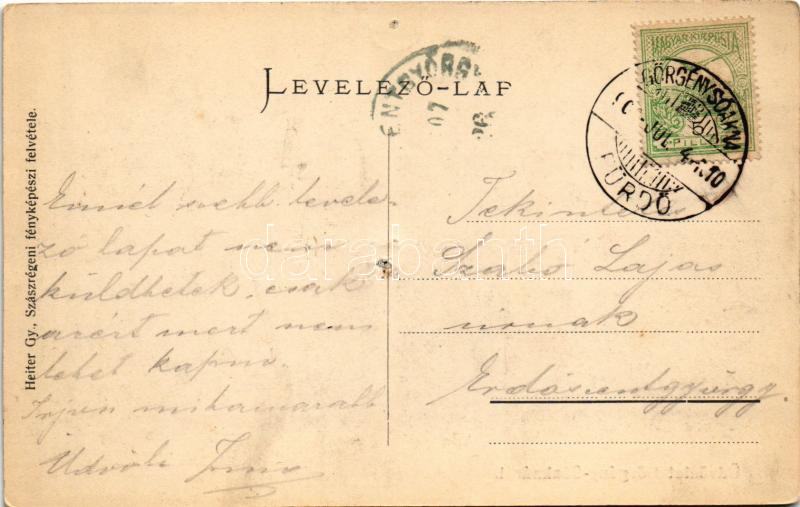 LEVELEZŐ-LAP
Heiter Gy., Szászrégeni fényképészi felvétele.
MAGYAR KIR. POSTA
GÖRGÉNYSÓAKNA
FÜRDŐ
07
Ennél szebb levele-
ző lapat nem
küldhetek, csak
azért mert nem
lehet kapni.
Irjon mihamarabb
Üdvözli
Tekintetes
Szabó Lajas
úrnak
Erdőszentgyörgy.
darabanth